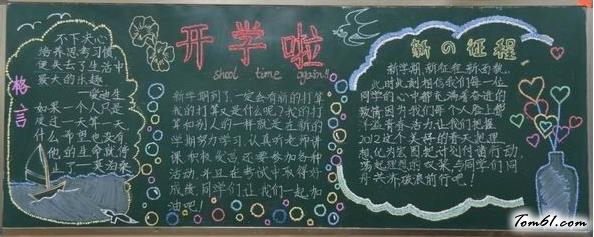 格言
不下决心
培养思考习惯
便失去了生活中
最大的乐趣
—爱迪生
如果一个人只是
度过一天算一天
什么希望也没有
他的生命就停
了
开学啦
shool time again!!
新学期到了一定会有新的打算
我的打算又是什么呢?我的打
算和别人的一样就是在新的
学期努力学习,认真听老师讲
课积极发言还要参加各种
活动,并且在考试中取得好
成绩,同学们让我们一起加
油吧!
新の征程
新学期,新征程,新面貌..
此时此刻相信我们每一位
同学的心中都充满着奋进的
激情因为我们每个人脸上都
洋溢青春活力让我们把握
2012这个美好的春天把理
想化为宏图把计划付诸行动,
荡起理想的双桨与同学们同
舟共济破浪前行吧!
Tom61.com